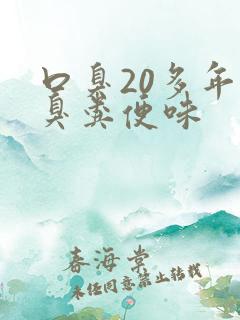 口臭20多年
臭粪便味
春海棠
未经同意禁止转载